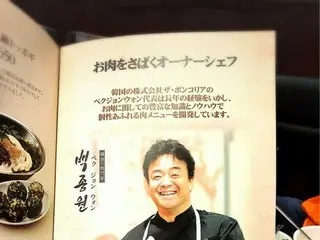 お肉をさばくオーナーシェフ
韓国の株式会社ザ・ボンコリアの
ペクジョンウォン代表は長年の経験をいかし、
お肉に関しての豊富な知識とノウハウで
個性あふれる肉メニューを開発しています。
ペク ジョン ウォン
백종원